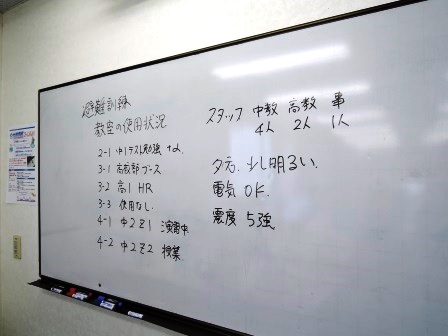 避難訓練
教室の使用状況
2-1 中1テスト勉強 +α
3-1 高校部ブース
3-2 高1 HR
3-3 使用なし
4-1 中2Z1 演習中
4-2 中2Z2 授業
スタッフ 中教 高教 事
4人 2人 1人
夕方、少し明るい。
電気 OK
震度 5強